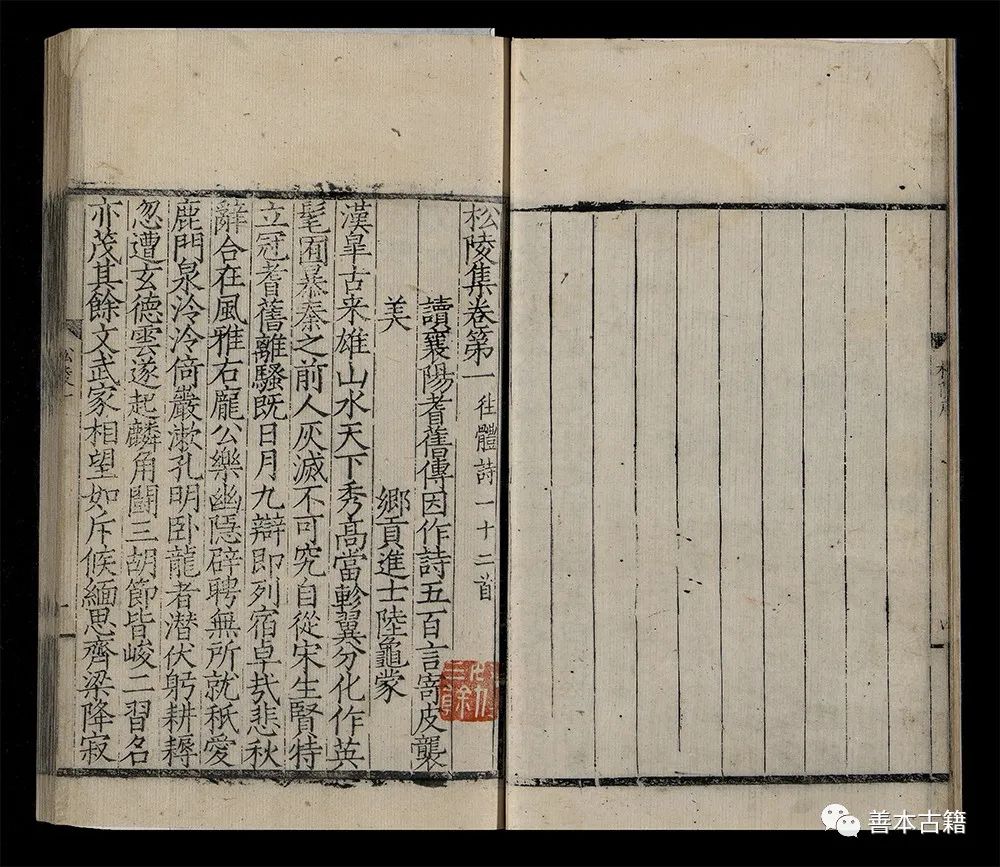 松陵集卷第一 往體詩一十二首
讀襄陽耆舊傳因作詩五百言寄皮襲
美
鄉貢進士陸龜蒙
漢臯古来雄山水天下秀高當軫翼分化作英
髦囿暴秦之前人灰滅不可究自從宋生賢特
立冠耆舊離騷既日月九辯即列宿卓㢤悲秋
辭合在風雅右龐公樂幽隱辟聘無所就秖愛
鹿門泉泠泠倚巖漱孔明卧龍者潛伏躬耕耨
忽遭玄德雲遂起麟角鬬三胡節皆峻二習名
亦茂其餘文武家相望如斥候緬思齊梁降寂
善本古籍